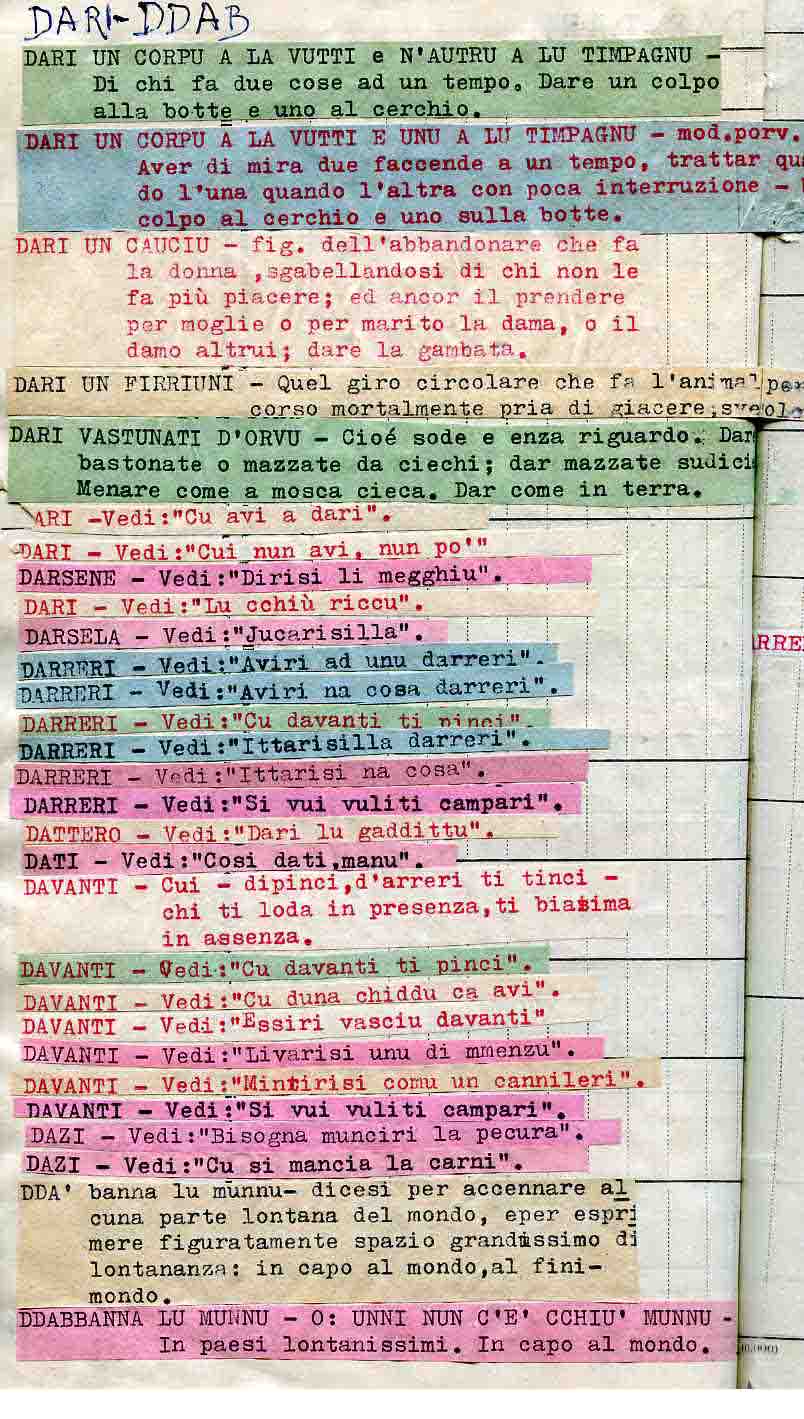 DARI-DDAB
DARI UN CORPU A LA VUTTI e N'AUTRU A LU TIMPAGNU -
Di chi fa due cose ad un tempo. Dare un colpo
alla botte e uno al cerchio.
DARI UN CORPU A LA VUTTI E UNU A LU TIMPAGNU - mod.porv.
Aver di mira due faccende a un tempo, trattar qua
do l'una quando l'altra con poca interruzione -
colpo al cerchio e uno sulla botte.
DARI UN CAUCIU - fig. dell'abbandonare che fa
la donna ,sgabellandosi di chi non le
fa più piacere; ed ancor il prendere
per moglie o per marito la dama, o il
damo altrui; dare la gambata.
DARI UN FIRRIUNI - Quel giro circolare che fa l'animal per
corso mortalmente pria di giacere;
DARI VASTUNATI D'ORVU - Cioé sode e enza riguardo. Dar
bastonate o mazzate da ciechi; dar mazzate sudici
Menare come a mosca cieca. Dar come in terra.
ARI -Vedi:"Cu avi a dari".
DARI - Vedi:"Cui nun avi, nun po'"
DARSENE - Vedi:"Dirisi li megghiu".
DARI - Vedi:"Lu cchiù riccu".
DARSELA - Vedi:"Jucarisilla".
RRE
DARRERI - Vedi:"Aviri ad unu darreri".
DARRERI - Vedi:"Aviri na cosa darreri".
DARRERI - Vedi:"Cu davanti ti pinci".
DARRERI - Vedi:"Ittarisilla darreri".
DARRERI - Vedi:"Ittarisi na cosa".
DARRERI - Vedi:"Si vui vuliti campari".
DATTERO - Vedi:"Dari lu gaddittu".
DATI - Vedi:"Cosi dati,manu".
DAVANTI - Cui - dipinci,d'arreri ti tinci -
chi ti loda in presenza,ti biasima
in assenza.
DAVANTI - Vedi:"Cu davanti ti pinci".
DAVANTI - Vedi:"Cu duna chiddu ca avi".
DAVANTI - Vedi:"Essiri vasciu davanti"
DAVANTI - Vedi:"Livarisi unu di mmenzu".
DAVANTI - Vedi:"Mintirisi comu un cannileri".
DAVANTI - Vedi:"Si vui vuliti campari".
DAZI - Vedi:"Bisogna munciri la pecura".
DAZI - Vedi:"Cu si mancia la carni".
DDA' banna lu munnu- dicesi per accennare al
cuna parte lontana del mondo, eper espri
mere figuratamente spazio grandissimo di
lontananza: in capo al mondo,al fini-
mondo.
DDABBANNA LU MUNNU - O: UNNI NUN C'E' CCHIU' MUNNU -
In paesi lontanissimi. In capo al mondo.